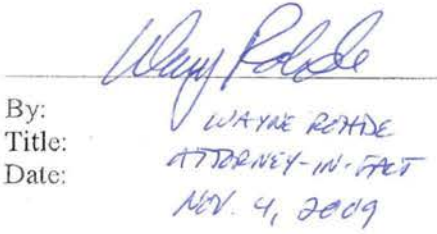 Wayne Rohde
By: WAYNE ROHDE
Title: ATTORNEY-IN-FACT
Date: NOV. 4, 2009